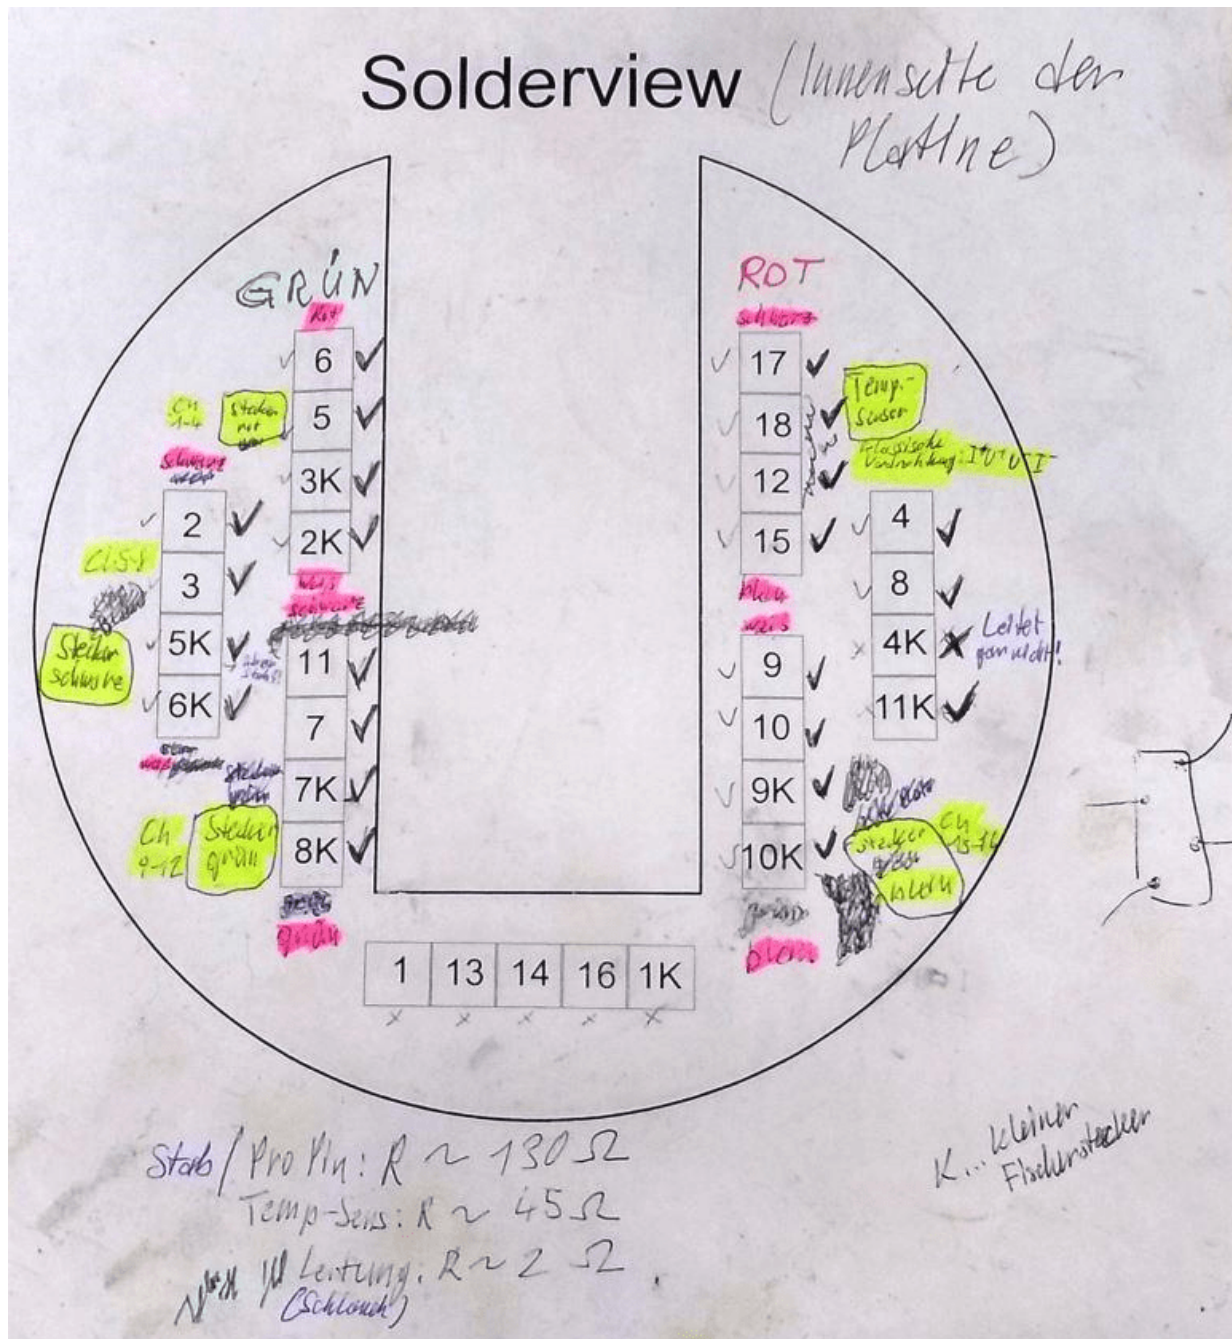 Solderview (Innenseite der
Platine)
GRÜN
Rot
6
5
3K
2K
Ch
1-4
Stecker
rot
schwarz
2
3
5K
6K
Ch 5-8
Stecker
schwarz
weis
schwarz
11
7
7K
8K
Ch
9-12
Stecker
grün
grün
ROT
schwarz
17
18
12
15
Temp.-
Sensor
klassische
Verdrahtung: I+U+U-I-
4
8
4K
11K
Leitet
gar nicht!
blau
weis
9
10
9K
10K
Stecker
blau
blau
1 13 14 16 1K
Stab/Pro Pin: R ~ 130 Ω
Temp-Sens: R ~ 45 Ω
Leitung: R ~ 2 Ω
(Schlauch)
K... kleiner
Fischerstecker